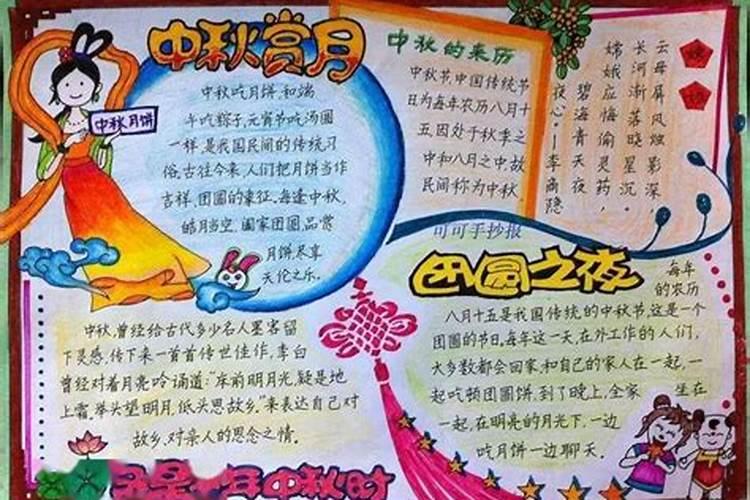 中秋赏月
中秋月饼
中秋吃月饼,和端
午吃粽子,元宵节吃汤圆
一样,是我国民间的传统习
俗,古往今来,人们把月饼当作
吉祥、团圆的象征。每逢中秋,
皓月当空,阖家团圆,品尝
月饼尽享
天伦之乐。
中秋的来历
中秋节中国传统节
日为每年农历八月十
五,因处于秋季之
中和八月之中,故
民间称为中秋
嫦娥
云母屏风烛影深,
长河渐落晓星沉。
嫦娥应悔偷灵药,
碧海青天夜
夜心。—李商隐
可可手抄报
团圆之夜
每年
的农历
八月十五是我国传统的中秋节,这是一个
团圆的节日,每年这一天,在外工作的人们,
大多数都会回家,和自己的家人在一起,一
起吃顿团圆饼,到了晚上,全家 坐在
一起,在明亮的月光下,一边
吃月饼一边聊天。
中秋,曾经给古代多少名人墨客留
下灵感,传下来一首首传世佳作,李白
曾经对着月亮吟诵道:“床前明月光,疑是地
上霜,举头望明月,低头思故乡。”来表达自己对
故乡,对亲人的思念之情。
又是一年中秋时